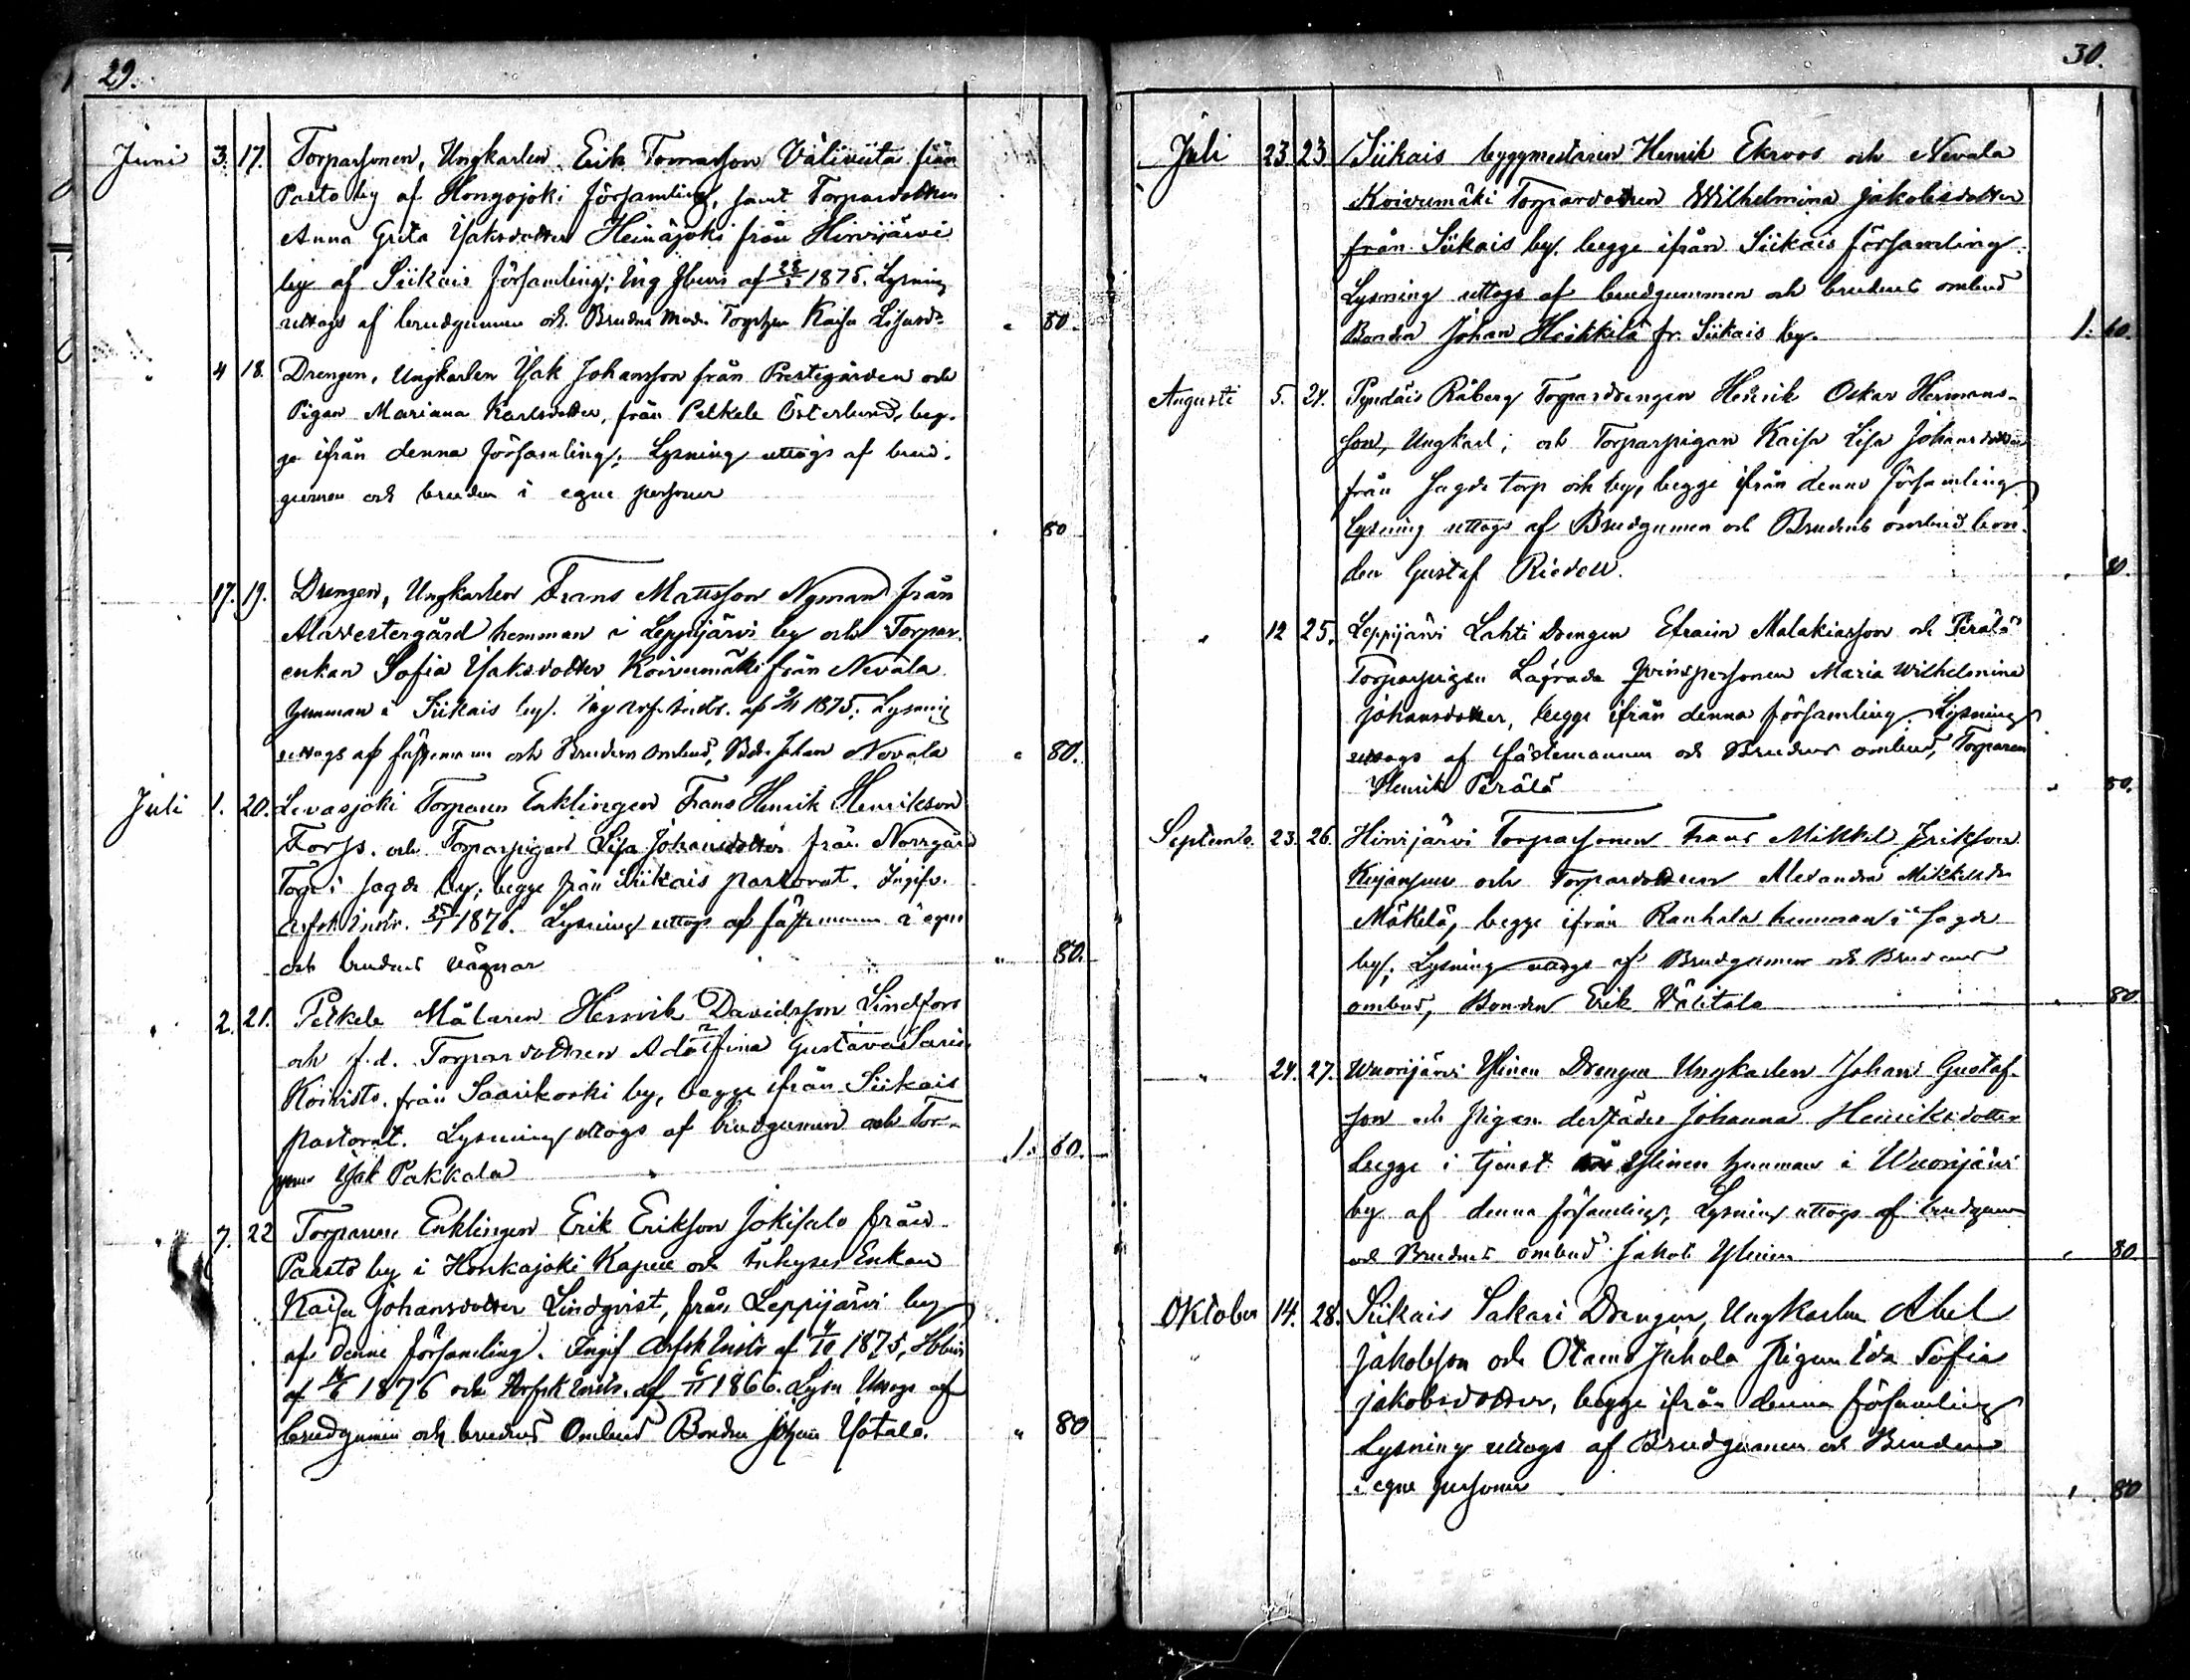 29.
Juni 3. 17. Torparsonen, Ungkarlen Erik Tomasson Väliviita från
Paasto by af Hongojoki församling, samt Torpardottren
Anna Greta Isaksdotter Heinäjoki från Hirvijärvi
by af Siikais församling; 1875. Lysning
uttogs af brudgumen och Brudens Kaisa " 80.
" 4 18. Drengen, Ungkarlen Isak Johansson från Prestegården och
Pigan Mariana Karlsdotter, från Pelkele Österlund, beg-
ge ifrån denna församling; Lysning uttogs af brud-
gumen och bruden i egne personer
" 80
17. 19. Drengen, Ungkarlen Frans Mattsson Nyman från
Alavestergård hemman i Leppijärvi by och Torpar-
enkan Sofia Isaksdotter Koivumäki från Nevala
hemman i Siikais by. 1875; Lysning
uttogs af fästeman och Brudens ombud, Johan Nevala " 80.
Juli 1. 20. Levasjoki Torparen Enklingen Frans Henrik Henriksson
Fors. och Torparpigan Lisa Johansdotter från Norrgård
Torp i Sagde by; begge från Siikais pastorat. Ingifv.
1876. Lysning uttogs af fästeman å egne
och brudens vägnar " 80.
" 2. 21. Pelkele Målaren Henrik Davidsson Lindfors
och f.d. Torpardottren Adolfina Gustava
Koivisto, från Saarikoski by, begge ifrån Siikais
pastorat. Lysning uttogs af brudgumen och Tor-
paren Isak Pakkala 1: 60.
" 7. 22 Torparen Enklingen Erik Eriksson Jokisalo från
Paasto by i Honkajoki Kapell och Inhyses Enkan
Kaisa Johansdotter Lindqvist, från Leppijärvi by
af denne församling. Ingif. 1875,
af 1876 och af 1866. Lysn Uttogs af
brudgumen och brudens Ombud Bonden Johan Yotalo. " 80
30.
Juli 23. 23 Siikais byggmestaren Henrik Ekroos och Nevala
Koivumäki Torpardottren Wilhelmina Jakobsdotter
från Siikais by. begge ifrån Siikais församling.
Lysning uttogs af brudgummen och brudens ombud
Bonden Johan Heikkilä fr. Siikais by. 1: 60.
Augusti 5. 24. Råberg Torpardrengen Henrik Oskar Hermans-
son, Ungkarl; och Torparpigan Kaisa Lisa Johansdotter
från Sagde torp och by, begge ifrån denna församling
Lysning uttogs af Brudgumen och Brudens ombud bon-
den Gustaf Riedell. " 80.
" 12 25. Leppijärvi Lahti Drengen Efraim Malakiasson och Perälä
Torparpigan Lägrade qvinspersonen Maria Wilhelmina
Johansdotter, begge ifrån denna församling. Lysning
uttogs af fästemannen och Brudens ombud, Torparen
Henrik Perälä " 80.
Septemb. 23. 26. Hirvijärvi Torparsonen Frans Mikkel Eriksson
Kujanpää och Torpardottren Alexandra Mikkelsdr
Mäkelä, begge ifrån Rauhala hemman i Sagde
by; Lysning uttogs af Brudgumen och Brudens
ombud, Bonden Erik Välitalo " 80
" 24. 27. Wuorijärvi Ylinen Drengen Ungkarlen Johan Gustaf-
son och pigan derstädes Johanna Henriksdotter
begge i tjenst Ylinen hemman i Wuorijärvi
by af denna församling; Lysning uttogs af brudgumen
och Brudens ombud Jakob Ylinen " 80
Oktober 14. 28. Siikais Sakari Drengen, Ungkarlen Abel
Jakobsson och Otamo Juhola Pigan Eda Sofia
Jakobsdotter, begge ifrån denna församling
Lysning uttogs af Brudgumen och Bruden
i egne personer " 80